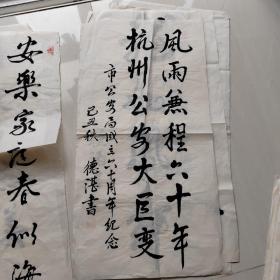 風雨兼程六十年
杭州公安大巨变
市公安局成立六十周年纪念
己丑秋 德湛書
安樂家庭春似海